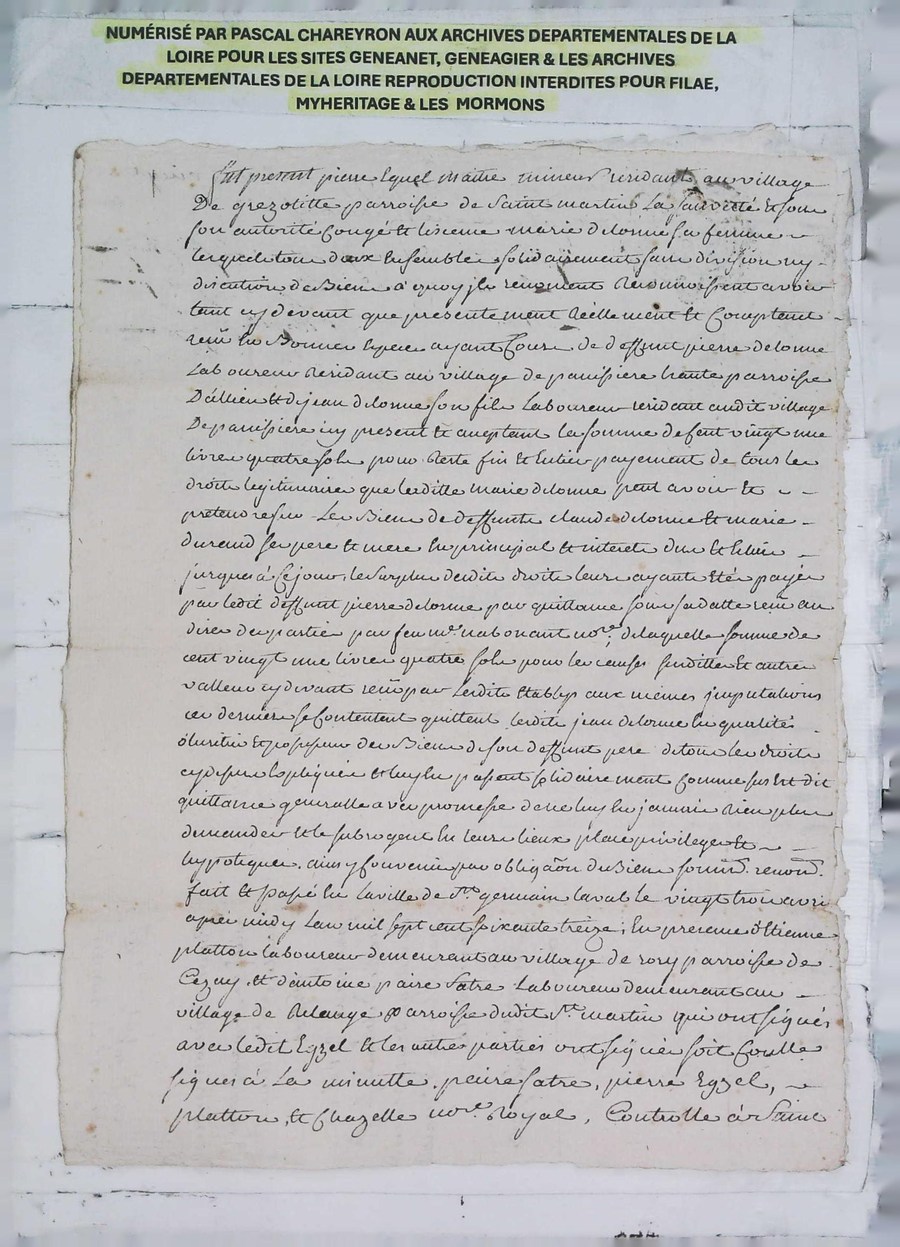 NUMÉRISÉ PAR PASCAL CHAREYRON AUX ARCHIVES DEPARTEMENTALES DE LA
LOIRE POUR LES SITES GENEANET, GENEAGIER & LES ARCHIVES
DEPARTEMENTALES DE LA LOIRE REPRODUCTION INTERDITES POUR FILAE,
MYHERITAGE & LES MORMONS
fut present pierre Equel Maitre mineur residant au village
De grezolette parroisse de Saint martin La Sauvetté Et sous
son autorité Congé et lisceme marie delorme sa femme
lesquels tous deux Ensemble solidairement sans division ny
discution de Biens a quoy jls renoncent Reconnoissent avoir
tant cy devant que presentement Réellement Et Comptant
reçû En Bonnes Espece ayant Cours de deffunt pierre delorme
Laboureur Residant au village de panissiere haute parroisse
D'allieu Et de jean delorme son fils Laboureur residant audit village
De panissiere icy present Et acceptant la somme de Cent vingt une
livres quatre sols pour Reste fin Et Entier payement de tous les
droits legitimaires que laditte marie delorme peut avoir Et
pretendre sur Les Biens de deffunts claude delorme Et marie
durand ses pere Et mere En principal Et interets dus Et Echus
jusques à Ce jour, le Surplus desdits droits leurs ayants Eté payés
par ledit deffunt pierre delorme par quittance sous sa datte reçû au
dire des parties par feu me. nabonant nore. de laquelle somme de
cent vingt une livres quatre sols pour les causes susdittes Et autres
valleurs cy devant reçû par lesdits Etablys aux mêmes jmputations
ces derniers se Contentent quittent ledit jean delorme En qualités
d'heritier Et possesseur des Biens de son deffunt pere de tous les droits
cy dessus Expliqués Et luy En passent solidairement Comme sus Est dit
quittance generalle avec promesse de ne luy En jamais Rien plus
demander Et le subrogent En leurs lieux place privileges Et
hypotèques. ainsy Convenu par obligaôn de Biens soumis. renonts.
fait Et passé En La ville de St. germain laval le vingt trois avril
après midy L'an mil sept cent soixante treize; En presence d'Etienne
platton laboureur demeurant au village de rory parroisse de
Cezay, Et d'antoine paire Satre Laboureur demeurant au
village de Relange parroisse dudit St. martin qui ont signés
avec ledit Egzel Et les autres parties ont
signés à La minutte. paire satre, pierre Egzel,
platton, Et Chazelle nore. Royal, Controllé à Saint